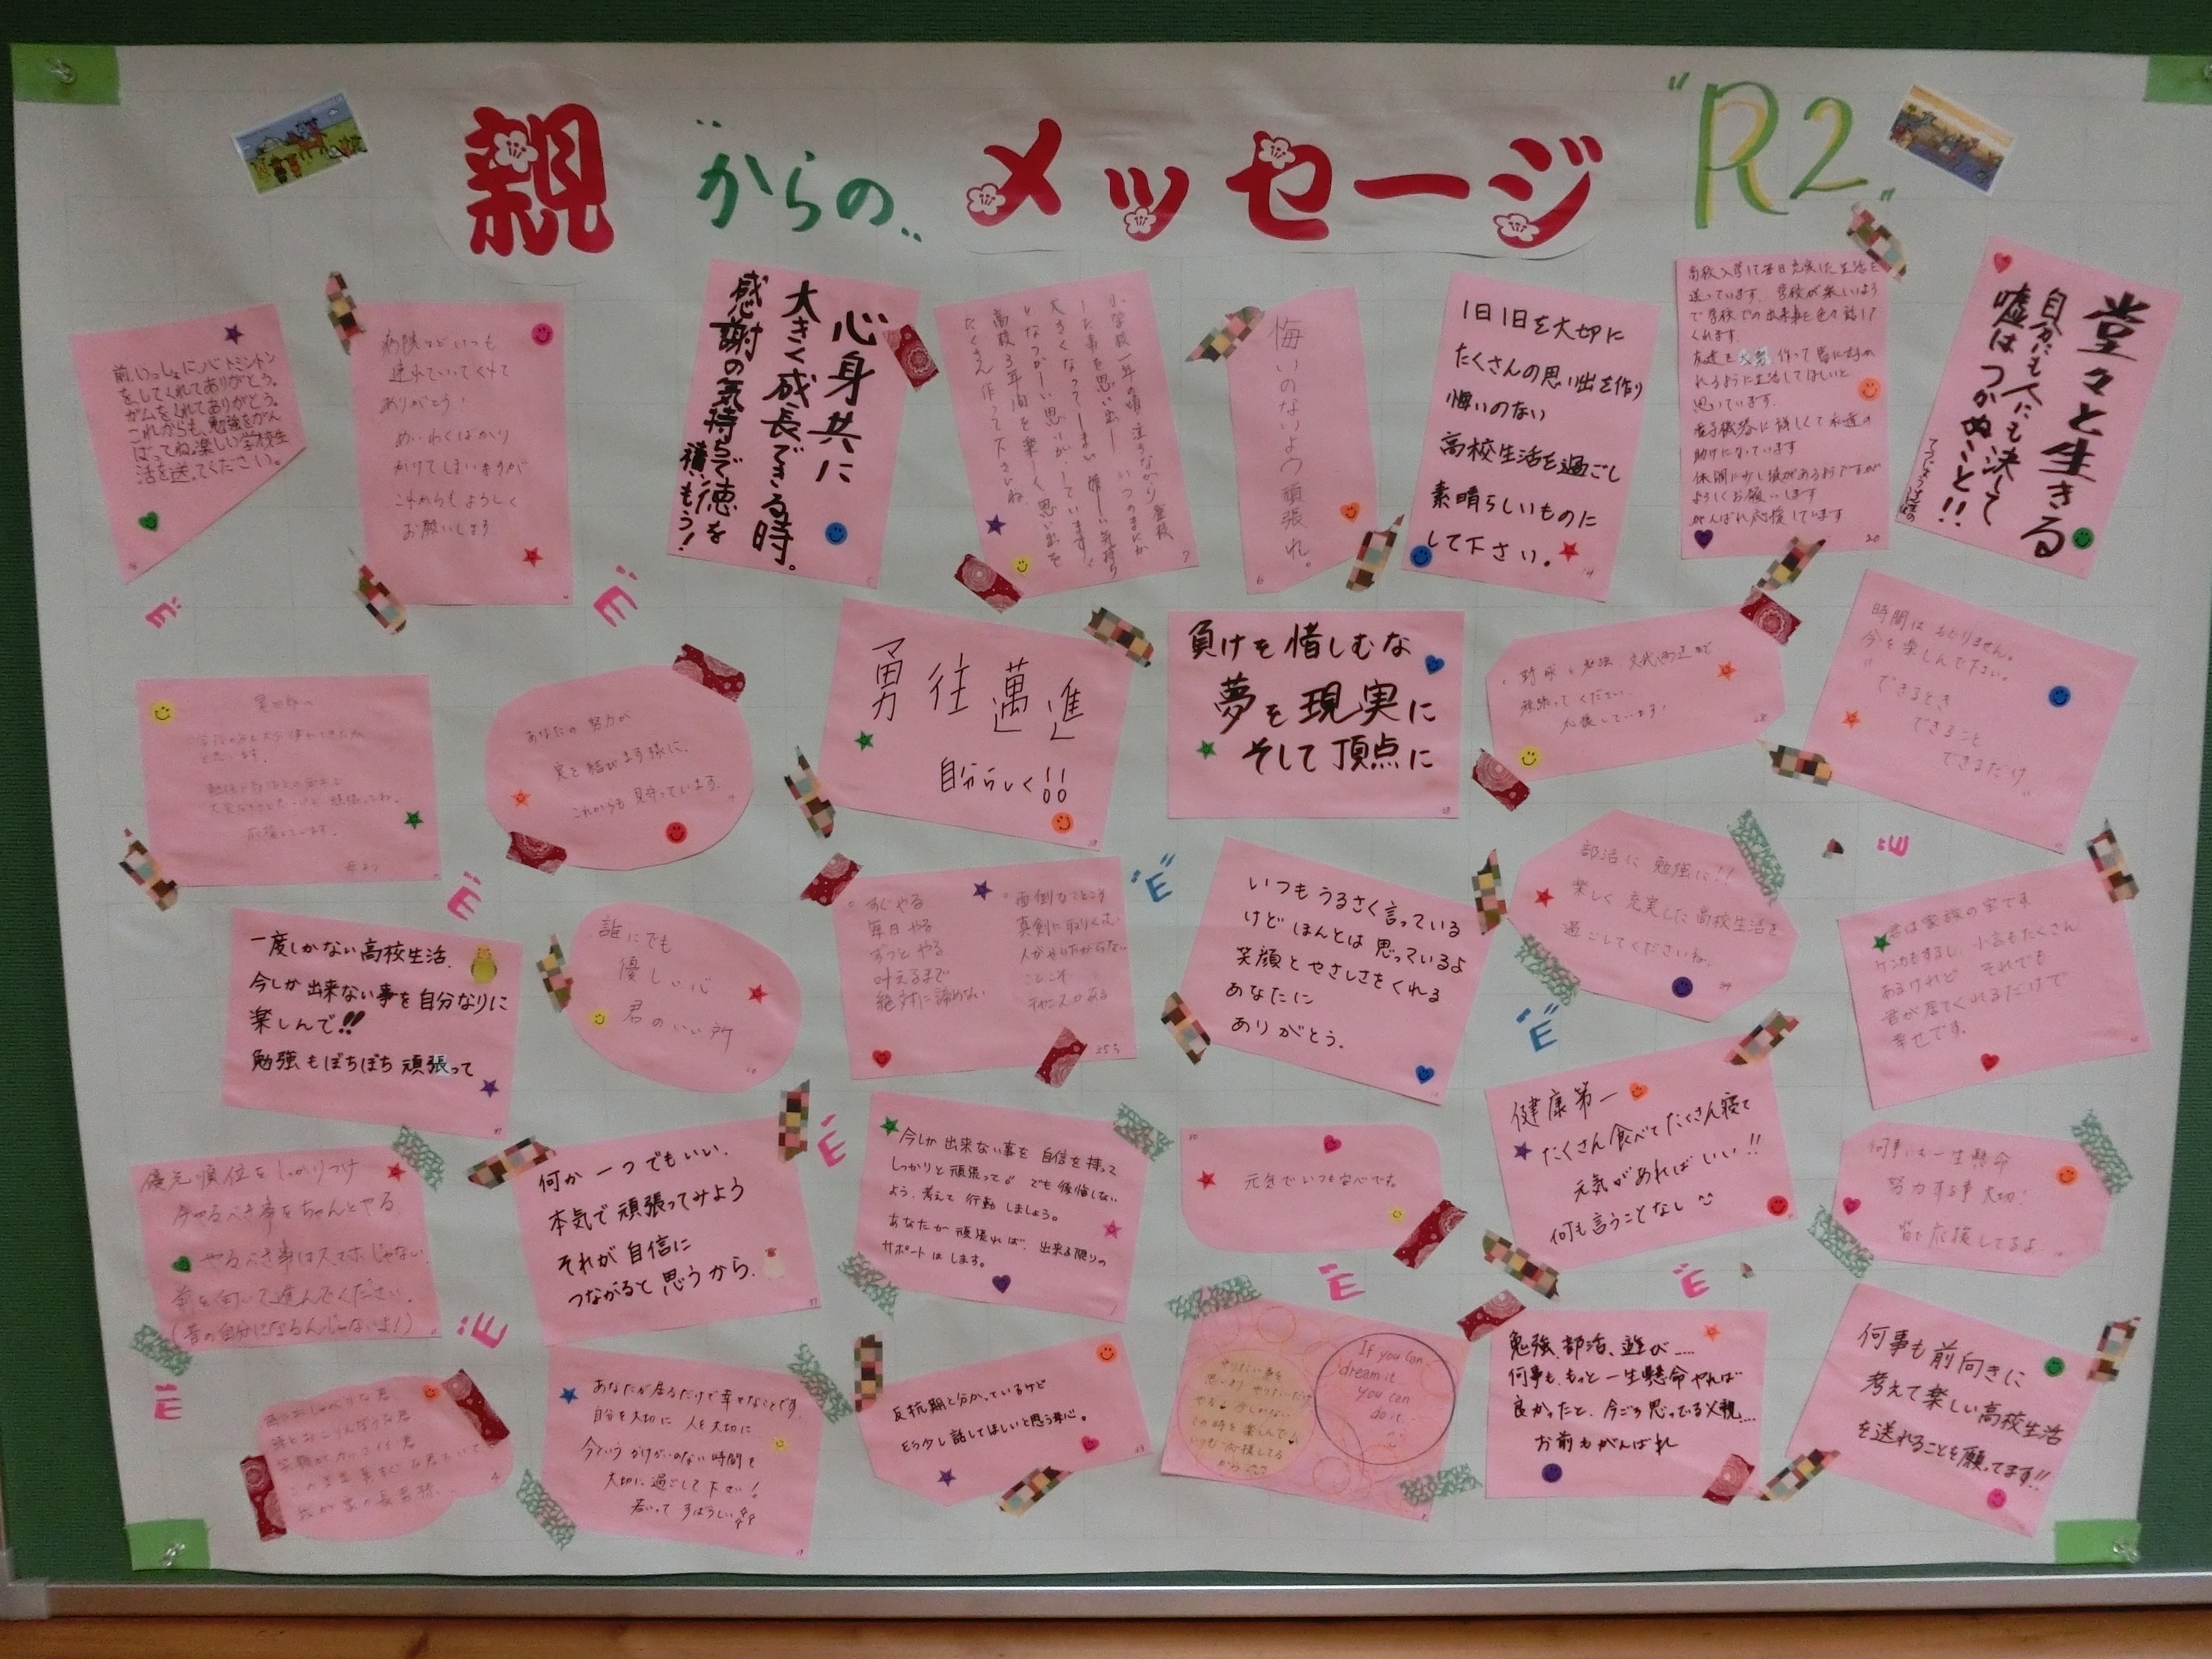 親 からの メッセージ "R2"
前、いっしょに、バトミントン
をしてくれてありがとう。
ガムをくれてありがとう。
これからも、勉強をがん
ばってね。楽しい学校生
活を送ってください。
病院などいつも
連れていってくれて
ありがとう!
めいわくばかり
かけてしまいますが
これからもよろしく
お願いします
心身共に
大きく成長できる時。
感謝の気持ちで徳を
積もう!
小学校一年の頃 泣きながら登校
した事を思い出し いつのまにか
大きくなってしまい 嬉しい気持ち
となつかしい思いが
高校3年間を楽しく 思い出を
たくさん作って下さいね
悔いのないよう頑張れ。
1日1日を大切に
たくさんの思い出を作り
悔いのない
高校生活を過ごし
素晴らしいものに
して下さい。
高校入学して毎日充実した生活を
送っています。学校が楽しいよう
で学校での出来事を色々話して
くれます。
友達を大勢作って皆に
れるように生活してほしいと
思いています。
電子機器に詳しくて友達の
助けになっています
よろしくお願いします
がんばれ応援しています
20
堂々と生きる
自分にも人にも決して
嘘はつかぬこと!!
と思います。
応援しています。
母より
あなたの努力が
実を結びます様に。
これからも見守っています。
勇往邁進
自分らしく!!
負けを惜しむな
夢を現実に
そして頂点に
野球と勉強 文武両道で
頑張ってください
応援しています!
時間はもどりません。
今を楽しんで下さい。
"できるとき
できること
できるだけ"
一度しかない高校生活、
今しか出来ない事を自分なりに
楽しんで!!
勉強もぼちぼち頑張って
誰にでも
優しい心
君のいい所
すぐやる
毎日やる
ずっとやる
叶えるまで
絶対に諦めない
面倒なことこそ
真剣に取りくむ
人がやりたがらない
ことこそ
チャンスがある
いつもうるさく言っている
けど ほんとは 思っているよ
笑顔とやさしさをくれる
あなたに
ありがとう。
部活に 勉強に!!
楽しく 充実した高校生活を
過ごしてくださいね。
君は家族の宝です
ケンカもするし 小言もたくさん
あるけれど それでも
君が居てくれるだけで
幸せです。
優先順位をしっかりつけ
今やるべき事をちゃんとやる。
やるべき事はスマホじゃない。
前を向いて進んでください。
(昔の自分になるんじゃないよ!)
何か一つでもいい、
本気で頑張ってみよう
それが自信に
つながると思うから。
今しか出来ない事を 自信を持って
しっかりと頑張って♂ でも後悔しない
よう、考えて行動しましょう。
あなたが頑張れば、出来る限りの
サポートはします。
元気でいつも安心です。
健康第一
たくさん食べてたくさん寝て
元気があればいい!!
何も言うことなし
何事にも一生懸命
努力する事 大切!
皆で応援してるよ
あなたが居るだけで幸せなことです。
自分を大切に 人を大切に
今というかけがいのない時間を
大切に過ごして下さい!
若いって すばらしい
反抗期と分かっているけど
もう少し話してほしいと思う母心。
やりたい事を
思いきりやりたいだけ
やる♪今しかない
この時を楽しんで♪
いつも応援してる
から
If you can
dream it
you can
do it.
勉強、部活、遊び……
何事も、もっと一生懸命やれば
良かったと、今ごろ思ってる父親…
お前もがんばれ
何事も前向きに
考えて楽しい高校生活
を送れることを願ってます!!